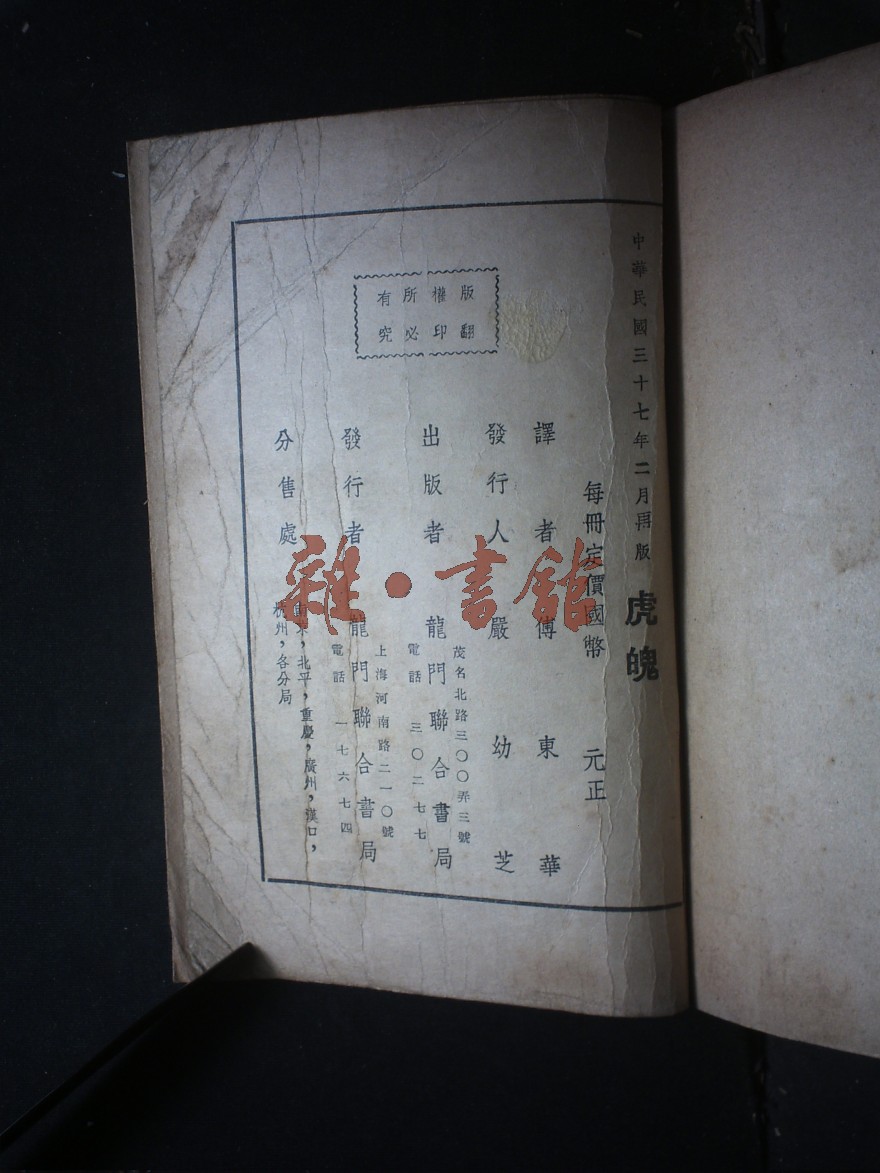 中華民國三十七年二月再版
虎魄
每冊定價國幣 元正
譯者 傅東華
發行人 嚴幼芝
版權所有
翻印必究
出版者 龍門聯合書局
茂名北路三〇〇弄三號
電話 三〇二七七
發行者 龍門聯合書局
上海河南路二一〇號
電話 一七六七四
分售處
北平，重慶，廣州，漢口，
杭州，各分局
雜·書館